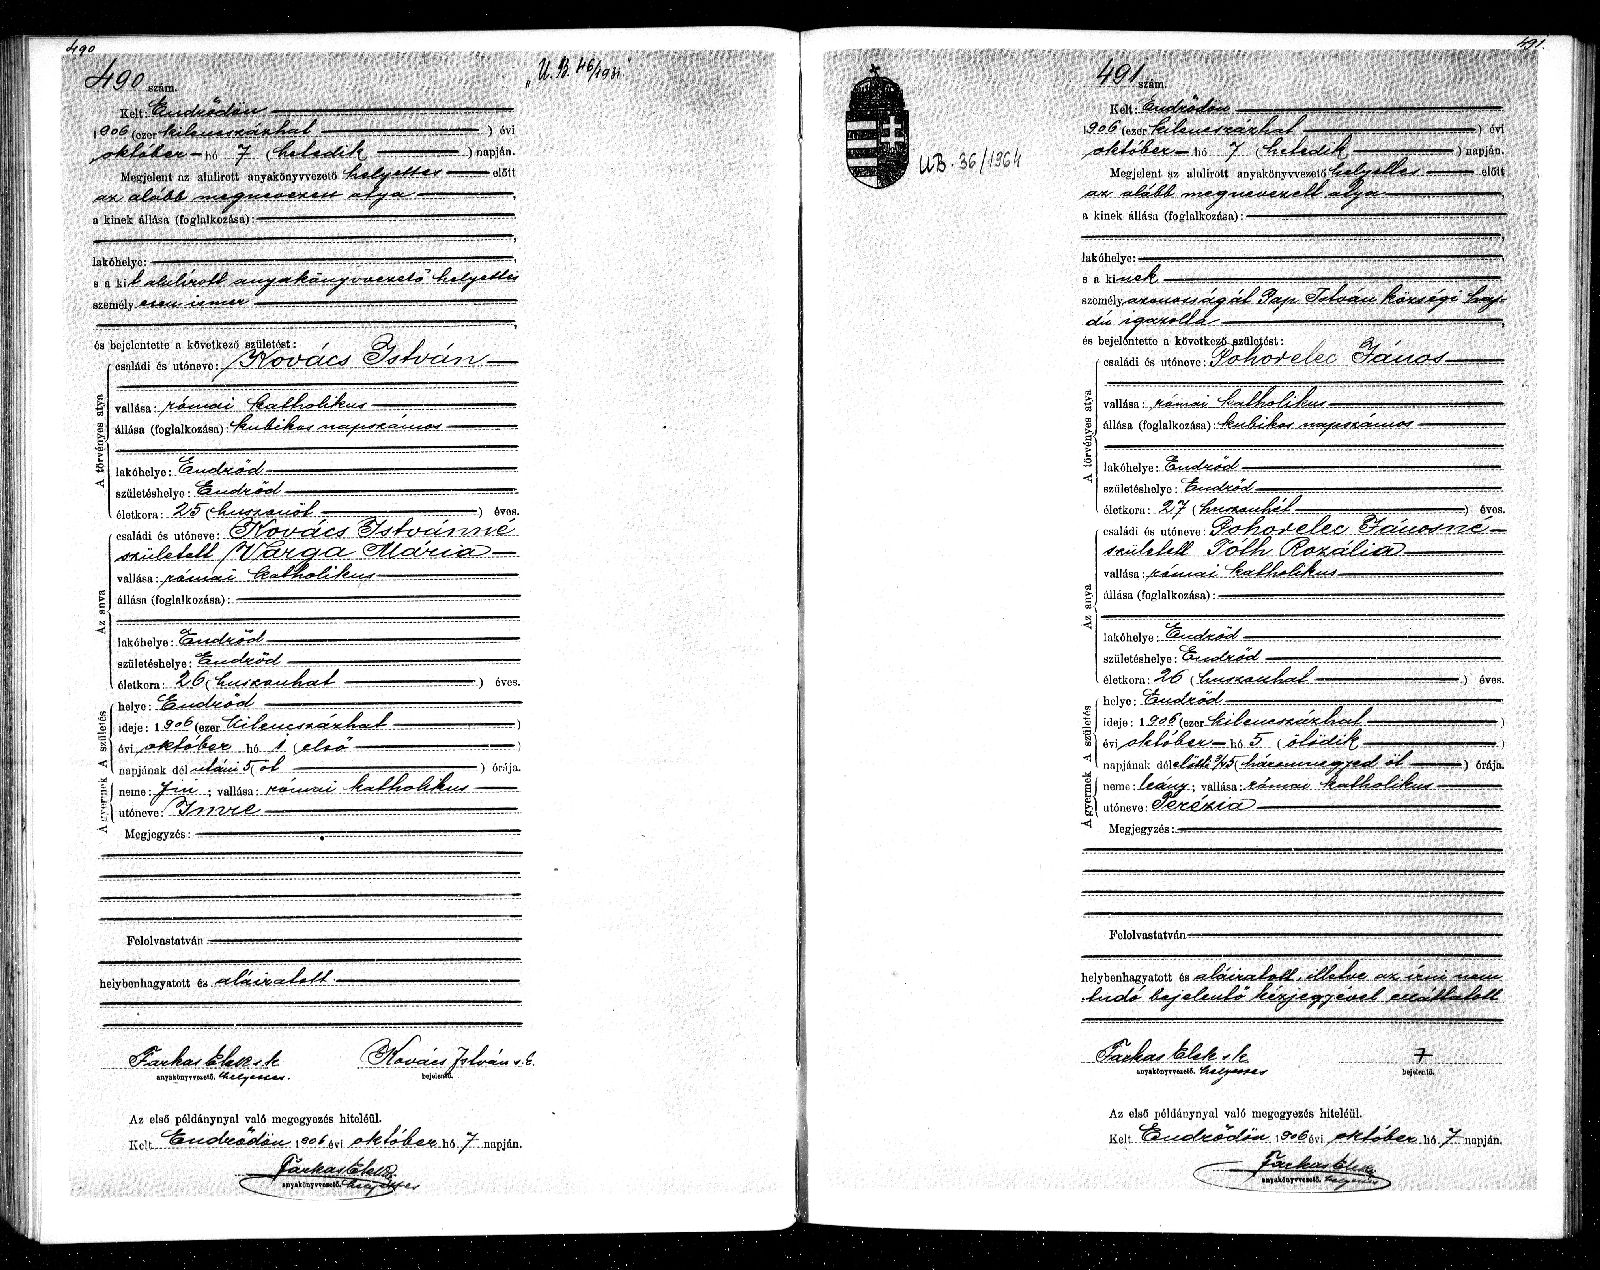 490
490 szám.
„U. B. 46/1931"
Kelt: Endrődön
1906 (ezer kilencszázhat ) évi
október hó 7 (hetedik ) napján.
Megjelent az alulirott anyakönyvvezető helyettes előtt
az alább megnevezett atya
a kinek állása (foglalkozása):
lakóhelye:
s a kit alulírott anyakönyvvezető helyettes
személyesen ismer
és bejelentette a következő születést:
A törvényes atya
családi és utóneve: Kovács István
vallása: római katholikus
állása (foglalkozása): kubikos napszámos
lakóhelye: Endrőd
születéshelye: Endrőd
életkora: 25 (huszonöt ) éves.
Az anya
családi és utóneve: Kovács Istvánné
született Varga Mária
vallása: római katholikus
állása (foglalkozása):
lakóhelye: Endrőd
születéshelye: Endrőd
életkora: 26 (huszonhat ) éves.
A születés
helye: Endrőd
ideje: 1906 (ezer kilencszázhat )
évi október hó 1 (első )
napjának dél utáni 5 (öt ) órája.
A gyermek
neme: fiu ; vallása: római katholikus
utóneve: Imre
Megjegyzés:
Felolvastatván
helybenhagyatott és aláiratott.
Farkas Elek s.k. Kovács István s. k.
anyakönyvvezető. helyettes. bejelentő.
Az első példánynyal való megegyezés hiteléül.
Kelt Endrődön 1906 évi október hó 7 napján.
Farkas Elek
anyakönyvvezető. helyettes
491.
491 szám.
UB. 36/1964
Kelt: Endrődön
1906 (ezer kilencszázhat ) évi
október hó 7 (hetedik ) napján.
Megjelent az alulirott anyakönyvvezető helyettes előtt
az alább megnevezett atya
a kinek állása (foglalkozása):
lakóhelye:
s a kinek
személyazonosságát Pap István községi haj-
dú igazolta
és bejelentette a következő születést:
A törvényes atya
családi és utóneve: Pohorelec János
vallása: római katholikus
állása (foglalkozása): kubikos napszámos
lakóhelye: Endrőd
születéshelye: Endrőd
életkora: 27 (huszonhét ) éves.
Az anya
családi és utóneve: Pohorelec Jánosné
született Tóth Rozália
vallása: római katholikus
állása (foglalkozása):
lakóhelye: Endrőd
születéshelye: Endrőd
életkora: 26 (huszonhat ) éves.
A születés
helye: Endrőd
ideje: 1906 (ezer kilencszázhat )
évi október hó 5. (ötödik )
napjának dél előtti 3/4 5 (háromnegyed öt ) órája.
A gyermek
neme: leány ; vallása: római katholikus
utóneve: Terézia
Megjegyzés:
Felolvastatván
helybenhagyatott és aláiratott, illetve az írni nem
tudó bejelentő kézjegyével elláttatott
Farkas Elek s.k.
anyakönyvvezető. helyettes bejelentő.
Az első példánynyal való megegyezés hiteléül.
Kelt Endrődön 1906 évi október hó 7 napján.
Farkas Elek
anyakönyvvezető. helyettes